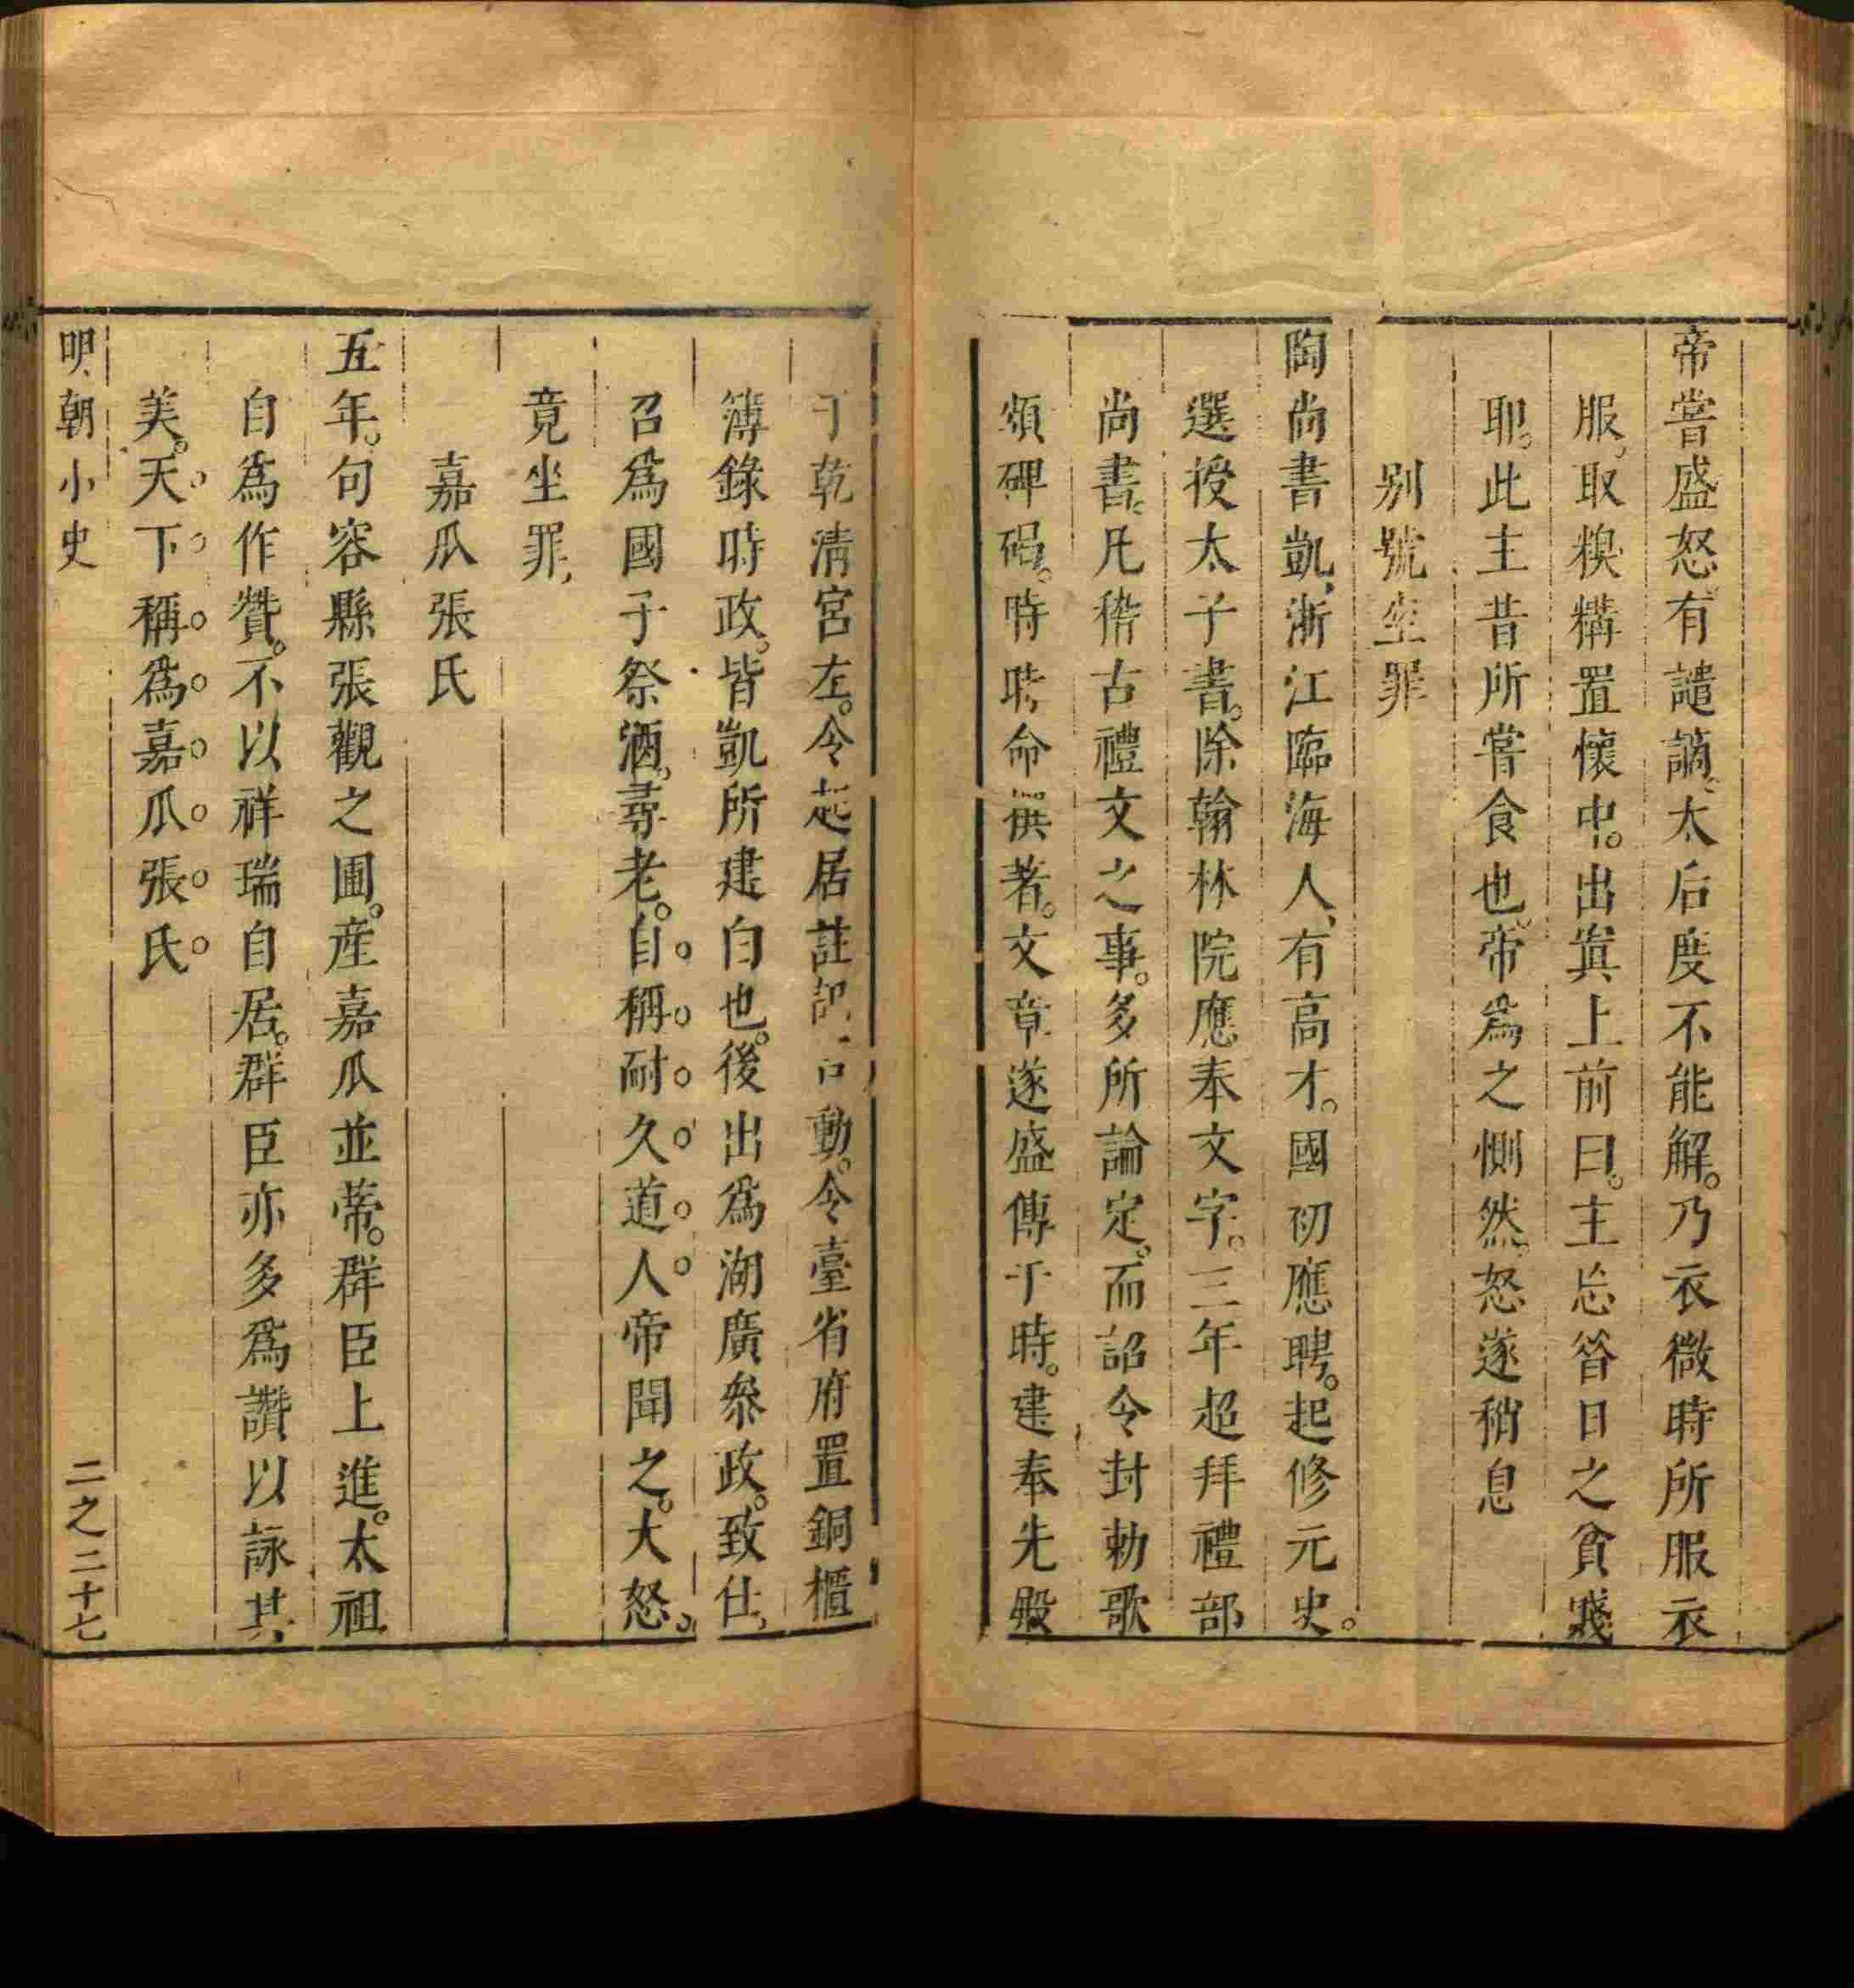 帝嘗盛怒有譴謫太后度不能解。乃衣微時所服衣
服。取糗糒置懷中。出寘上前曰。主忘昝日之貧賤
耶。此主昔所嘗食也。帝爲之惻然。怒遂稍息
別號坐罪
陶尚書凱、浙江臨海人、有高才。國初應聘。起修元史。
選授太子書。除翰林院應奉文字。三年超拜禮部
尚書。凡稽古禮文之事。多所論定。而詔令封勅歌
頌碑碣。時時命撰著。文章遂盛傳于時。建奉先殿
于乾淸宮左。令起居註記言動。令臺省府置銅櫃
簿錄時政。皆凱所建白也。後出爲湖廣叅政。致仕、
召爲國子祭酒。尋老。自稱耐久道人帝聞之。大怒。
竟坐罪、
嘉瓜張氏
五年。句容縣張觀之圃。産嘉瓜並蒂。群臣上進。太祖
自爲作贊。不以祥瑞自居。群臣亦多爲讚以詠其
美。天下稱爲嘉瓜張氏
明朝小史
二之二十七